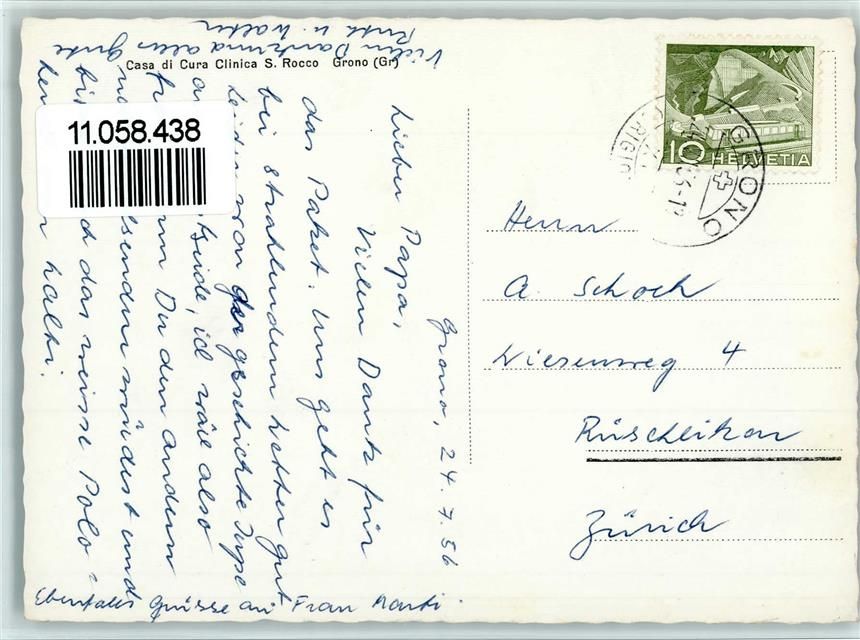 Casa di Cura Clinica S. Rocco Grono (Gr)
11.058.438
10 HELVETIA
GRONO
Herrn
A. Schoch
Wiesenweg 4
Rüschlikon
Zürich
Grono, 24. 7. 56
Lieber Papa,
Vielen Dank für
das Paket. Uns geht es
bei strahlendem Wetter gut
leider von der geschickte Jupe
also
Du den andern
senden würdest und
das weisse Polo-
Vielen Dank und alles Gute
Ruth u. Walter
Ebenfalls Grüsse an Frau Marti.